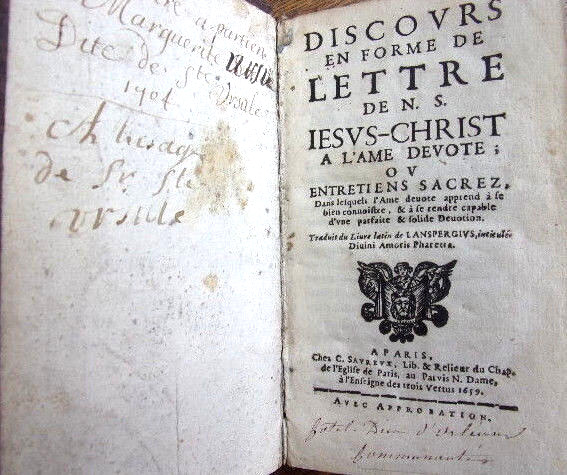 a partien
Marguerite
Dite de Ste Ursule
1704
A lusage
de Sr. Ste
ursule
DISCOVRS
EN FORME DE
LETTRE
DE N. S.
IESVS-CHRIST
A L'AME DEVOTE;
OV
ENTRETIENS SACREZ,
Dans lesquels l'Ame devote apprend à se
bien connoistre, & à se rendre capable
d'vne parfaite & solide Devotion.
Traduit du Liure latin de LANSPERGIVS, intitulé
Diuini Amoris Pharetra.
A PARIS,
Chez C. SAVREVX, Lib. & Relieur du Chap.
de l'Eglise de Paris, au Paruis N. Dame,
à l'Enseigne des trois Vertus 1659.
AVEC APPROBATION.
Communauté